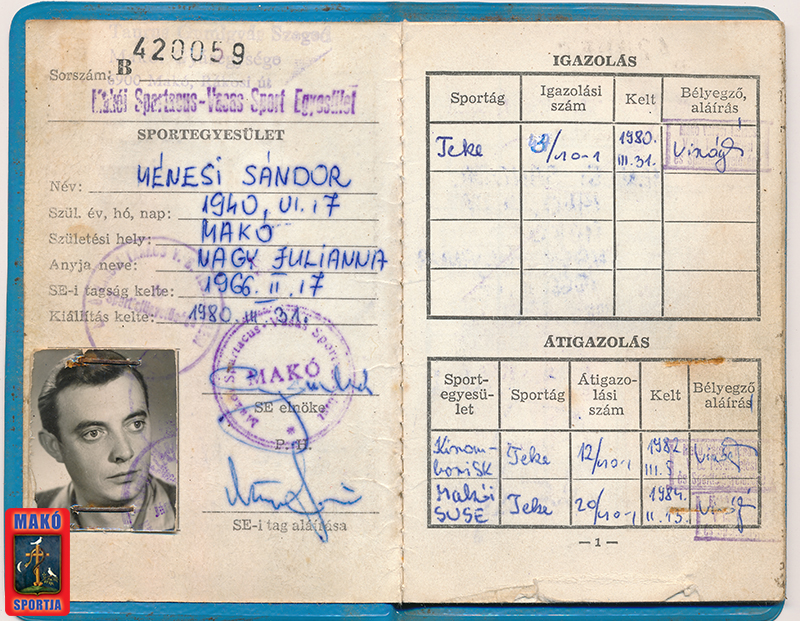 420059
Sorszám: B
Makói Spartacus-Vasas Sport Egyesület
SPORTEGYESÜLET
Név: MÉNESI SÁNDOR
Szül. év, hó, nap: 1940. VI. 17
Születési hely: MAKÓ
Anyja neve: NAGY JULIANNA
SE-i tagság kelte: 1966. II. 17
Kiállítás kelte: 1980. III. 31.
Makói Spartacus-Vasas Sport
MAKÓ
SE elnöke
P. H.
SE-i tag aláírása
MAKÓ
SPORTJA
IGAZOLÁS
Sportág Igazolási szám Kelt Bélyegző, aláírás
Teke /10-1 1980. III. 31. Virág
ÁTIGAZOLÁS
Sport-egyesü-let Sportág Átigazo-lási szám Kelt Bélyegző aláírás
Teke 12/10-1 1982 III.
Makói SUSE Teke 20/10-1 1984. II. 15.
— 1 —